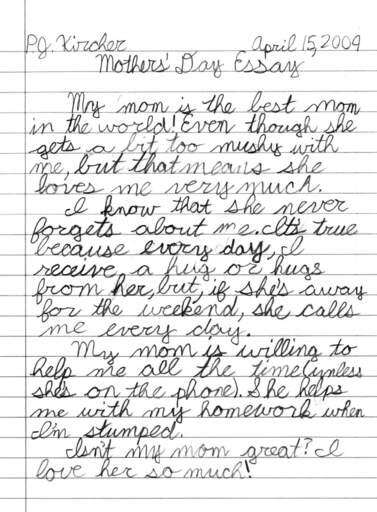 P.J. Kircher April 15, 2009
Mothers' Day Essay
My mom is the best mom
in the world! Even though she
gets a bit too mushy with
me, but that means she
loves me very much.
I know that she never
forgets about me. It's true
because every day, I
receive a hug or hugs
from her, but, if she's away
for the weekend, she calls
me every day.
My mom is willing to
help me all the time (unless
she's on the phone). She helps
me with my homework when
I'm stumped.
Isn't my mom great? I
love her so much!